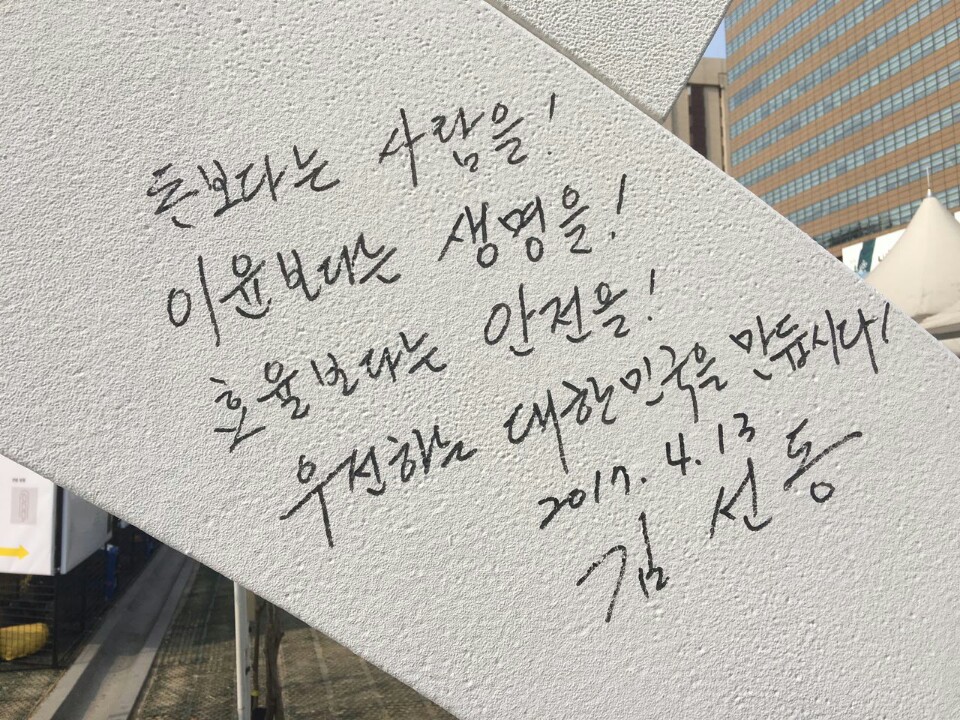 돈보다는 사람을!
이윤보다는 생명을!
효율보다는 안전을!
우선하는 대한민국을 만듭시다!
2017. 4. 13
김 선 동